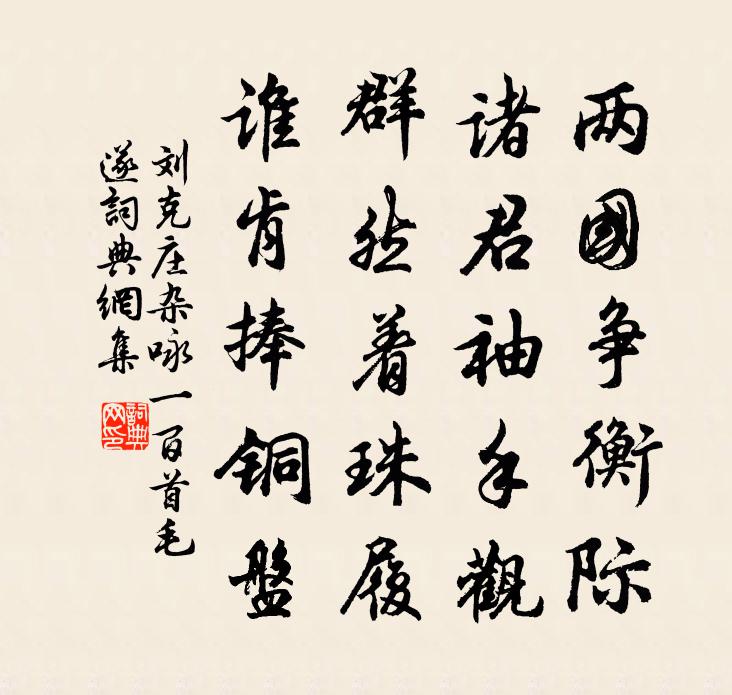 两國争衡际
诸君袖手觀
群然着珠履
谁肯捧铜盤
刘克庄杂咏一百首毛
遂詞典網集
詞典
网印